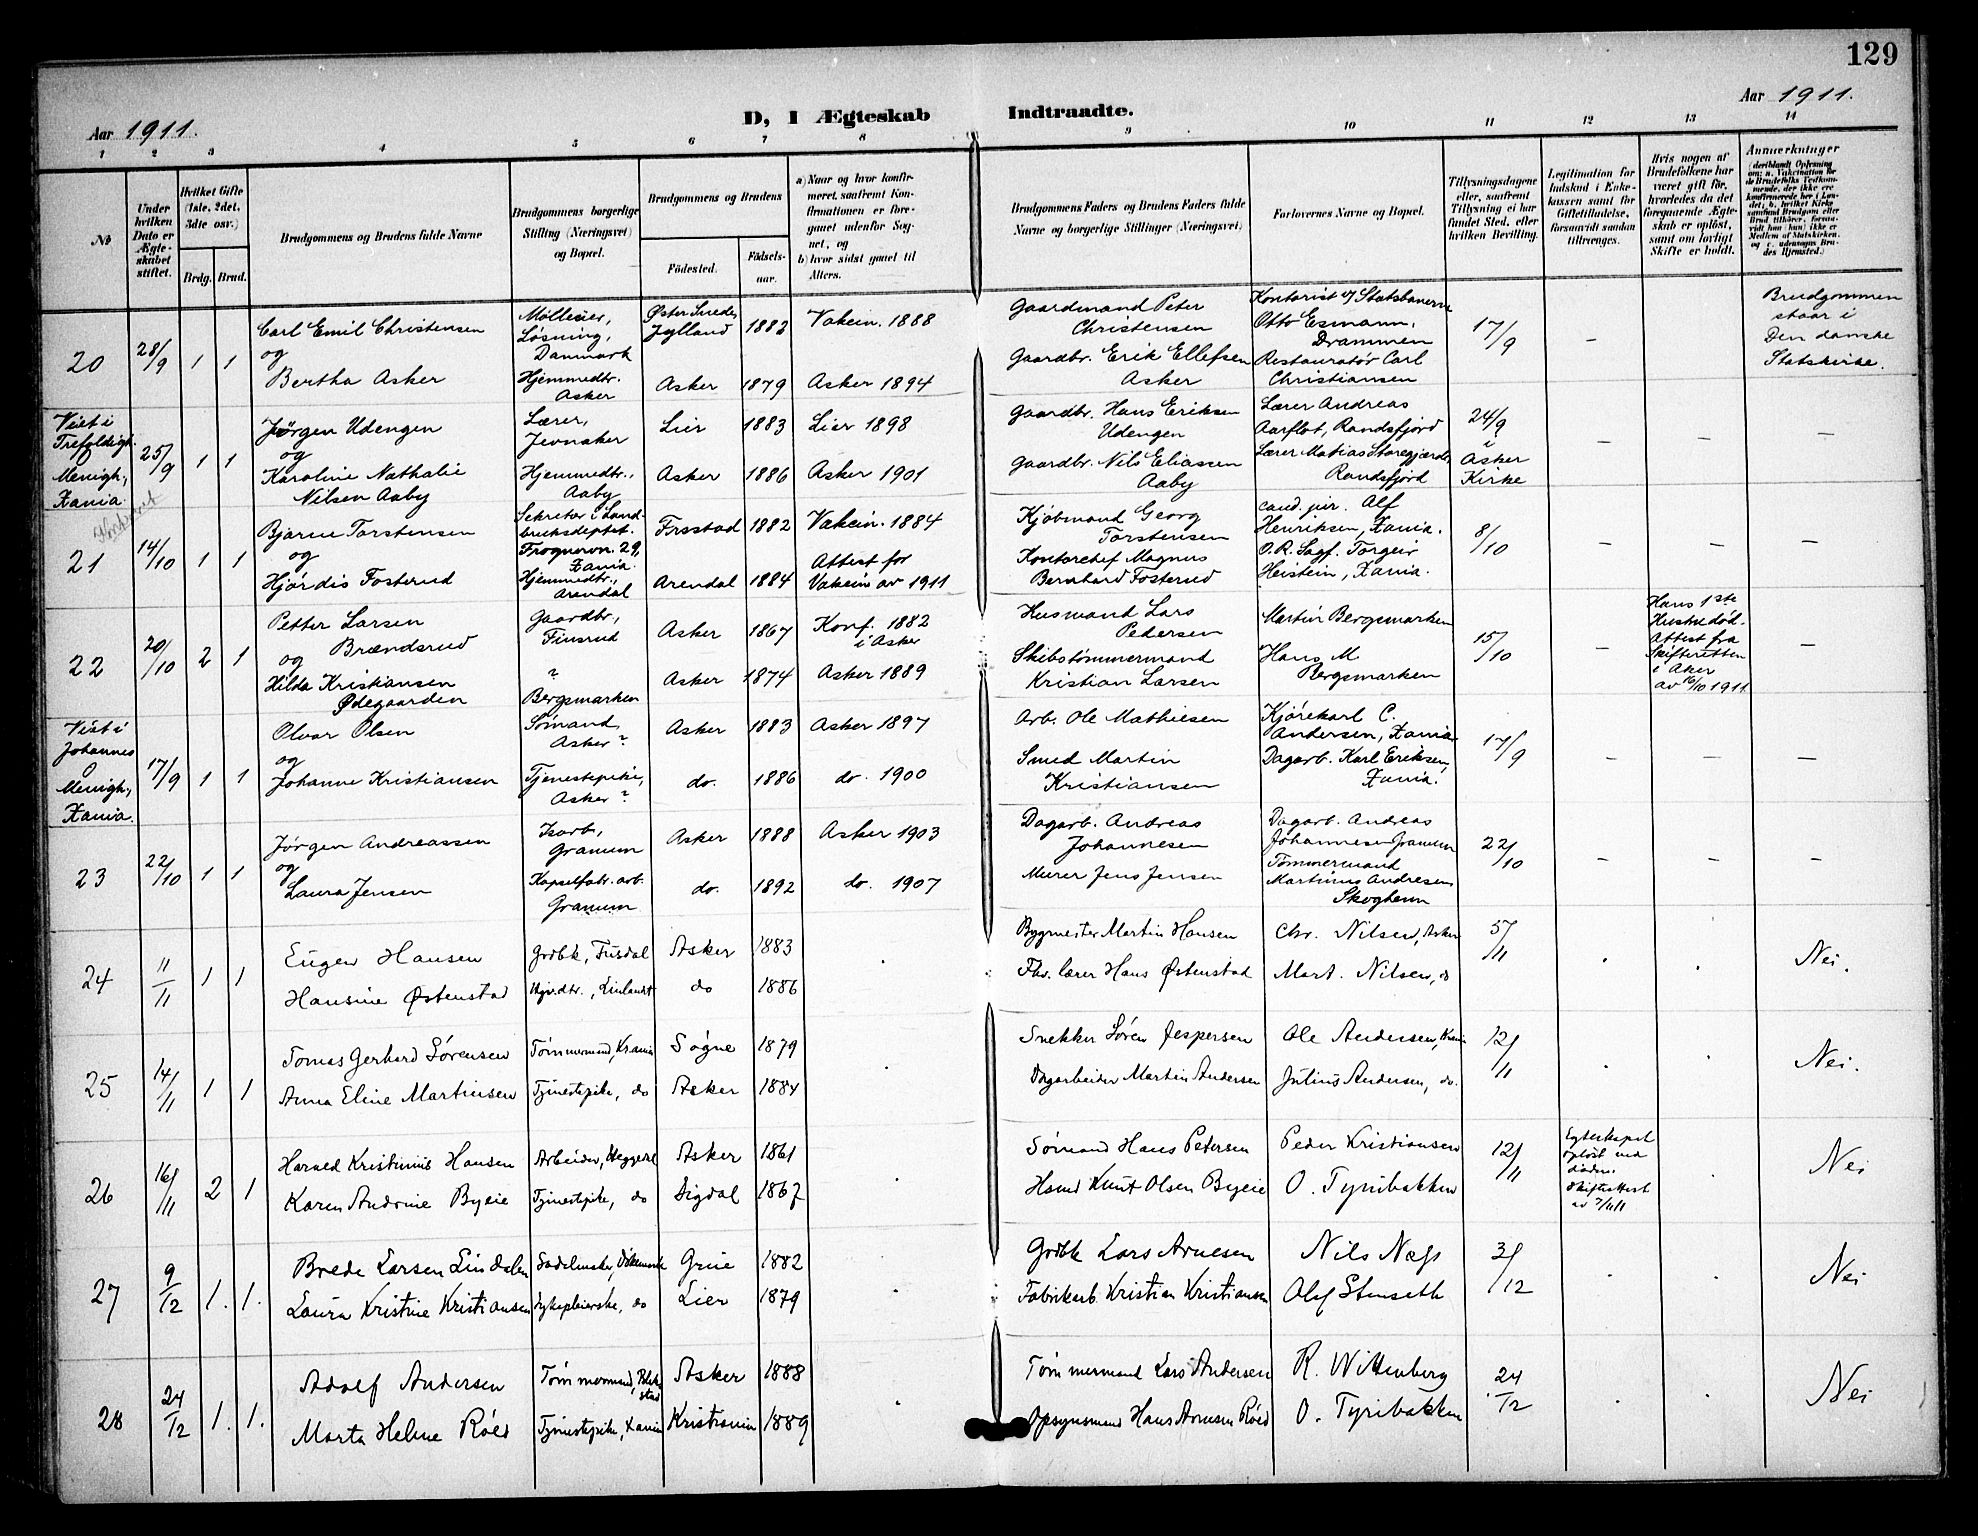 129
Aar 1911.
D, I Ægteskab Indtraadte.
Aar 1911.
1 2 3 4 5 6 7 8 9 10 11 12 13 14
No
Under hvilken Dato er Ægteskabet stiftet.
Hvilket Gifte (1ste, 2det, 3die osv.)
Brdg. Brud.
Brudgommens og Brudens fulde Navne
Brudgommens borgerlige Stilling (Næringsvei) og Bopæl.
Brudgommens og Brudens
Födested.
Födsels-aar.
a) Naar og hvor konfirmeret, saafremt Konfirmationen er foregaaet udenfor Sognet, og
b) hvor sidst gaaet til Alters.
Brudgommens Faders og Brudens Faders fulde Navne og borgerlige Stillinger (Næringsvei)
Forlovernes Navne og Bopæl.
Tillysningsdagene eller, saafremt Tillysning ei har fundet Sted, efter hvilken Bevilling.
Legitimation for Indskud i Enkekassen samt for Giftetilladelse, forsaavidt saadan tiltrænges.
Hvis nogen af Brudefolkene har været gift för, hvorledes da det foregaaende Ægteskab er oplöst, samt om lovligt Skifte er holdt.
Anmærkninger
20 28/9 1 1
Carl Emil Christensen
og
Bertha Asker
Møllerier, Løsning, Danmark
Hjemmedtr. Asker
Øster Snede, Jylland 1883 Vakcin. 1888
Asker 1879 Asker 1894
Gaardmand Peter Christensen
Gaardbr. Erik Ellefsen Asker
Kontorist v/ Statsbanerne Otto Esmann, Drammen
Restauratør Carl Christiansen
17/9 –
Brudgommen staar i Den danske Statskirke.
Viet i Trefoldigh. Menigh., Xania.
25/9 1 1
Jørgen Udengen
og
Karoline Nathalie Nilsen Aaby
Lærer, Jevnaker
Hjemmedtr., Aaby
Lier 1883 Lier 1898
Asker 1886 Asker 1901
Gaardbr. Hans Eriksen Udengen
Gaardbr. Nils Eliassen Aaby
Lærer Andreas Aarflot, Randsfjord
Lærer Matias Storegjerde, Randsfjord
24/9 i Asker Kirke – – –
21 14/10 1 1
Bjarne Torstensen
og
Hjördis Fosterud
Sekretær i Landbruksdeptet. Frognervn. 29, Xania.
Hjemmedtr., Arendal
Frsstad 1882 Vakcin. 1884
Arendal 1884 Attest for Vakcin av 1911
Kjöbmand Georg Torstensen
Kontorchef Magnus Bernhard Fosterud
cand. jur. Alf Henriksen, Xania.
O.R. Sagf. Torgeir Heistein, Xania.
8/10 – – –
22 20/10 2 1
Petter Larsen Brændsrud
og
Hilda Kristiansen Ødegaarden
Gaardbr., Finsrud
? Bergsmarken
Asker 1867 Konf. 1882 i Asker
Asker 1874 Asker 1889
Husmand Lars Pedersen
Skibstømmermand Kristian Larsen
Martin Bergsmarken
Hans M Bergsmarken
15/10 –
Hans 1ste Hustru död. Attest fra Skifteretten i Aker av 16/10 1911. –
Viet i Johannes Menigh., Xania.
17/9 1 1
Olvar Olsen
og
Johanne Kristiansen
Sømand, Asker?
Tjenestepike, Asker?
Asker 1883 Asker 1897
do. 1886 do. 1900
Arb. Ole Mathiesen
Smed Martin Kristiansen
Kjørekarl C. Andersen, Xania.
Dagarb. Karl Eriksen, Xania.
17/9 – – –
23 22/10 1 1
Jörgen Andreassen
og
Laura Jensen
Isarb, Granum
Kapselfabr. arb. Granum
Asker 1888 Asker 1903
do. 1892 do. 1907
Dagarb. Andreas Johannesen
Murer Jens Jensen
Dagarb. Andreas Johannesen Granum
Tömmermand Martinus Andresen, Skogheim
22/10 – – –
24 11/11 1 1
Eugen Hansen
Hansine Østenstad
Grdbk, Fusdal
Hjv.dtr.,
Asker 1883
do 1886
Bygmester Martin Hansen
Fhv. lærer Hans Østenstad
Chr. Nilsen, Asker
Mart. Nilsen, do
5/11 Nei.
25 14/11 1 1
Tomas Gerhard Sörensen
Anna Eline Martinsen
Tømmermand, Krania
Tjenestepike, do
Søgne 1879
Asker 1884
Snekker Sören Jespersen
Dagarbeider Martin Andersen
Ole Andersen, Krania
Julius Andersen, do.
12/11 Nei.
26 16/11 2 1
Harald Kristinius Hansen
Karen Andrine Byeie
Arbeider, Heggedal
Tjenestepike, do
Asker 1861
Sigdal 1867
Sömand Hans Petersen
Hsmd Knut Olsen Byeie
Peder Kristiansen
O. Tyribakken
12/11
Egteskapet oplöst ved döden. Skifteattest av 7/11 11
Nei
27 9/12 1. 1.
Brede Larsen Lindalen
Laura Kristine Kristiansen
Sadelmaker,
Sykepleierske, do
Grue 1882
Lier 1879
Grdbk Lars Arnesen
Fabrikarb. Kristian Kristiansen
Nils Næss
Olaf Stenseth
3/12 Nei
28 24/12 1. 1.
Adolf Andersen
Marta Helene Röed
Tømmermand, Blakstad
Tjenestepike, Xania
Asker 1888
Kristiania 1889
Tømmermand Lars Andersen
Opsynsmand Hans Arnesen Röed
R. Wittenberg
O. Tyribakken
24/12 Nei